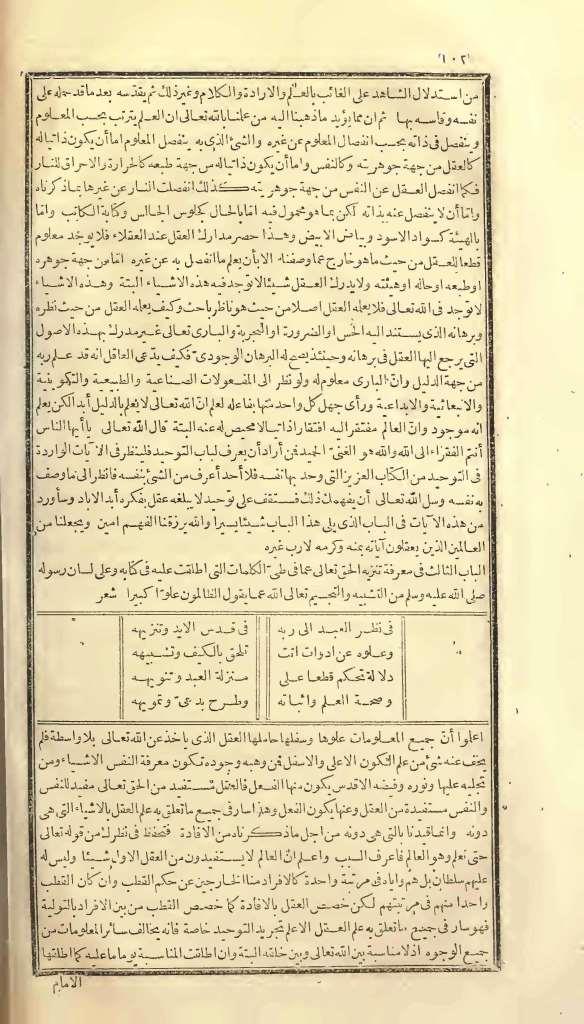 ١٠٢
من استدلال الشاهد على الغائب بالعلم والارادة والكلام وغير ذلك ثم يقدسه بعد ما قد حمله على
نفسه وقاسه بها ثم ان مما يؤيد ما ذهبنا اليه من علمنا بالله تعالى ان العلم يترتب بحسب المعلوم
وينفصل فى ذاته بحسب انفصال المعلوم عن غيره والشئ الذى به ينفصل المعلوم اما أن يكون ذاتيا له
كالعقل من جهة جوهريته وكالنفس واما أن يكون ذاتيا له من جهة طبعه كالحرارة والاحراق للنار
فكما انفصل العقل عن النفس من جهة جوهريته كذلك انفصلت النار عن غيرها بما ذكرناه
واما أن لا ينفصل عنه بذاته لكن بما هو محمول فيه اما بالحال كجلوس الجالس وكتابة الكاتب واما
بالهيئة كسواد الاسود وبياض الابيض وهذا حصر مدارك العقل عند العقلاء فلا يوجد معلوم
قطعا للعقل من حيث ما هو خارج عما وصفنا الا بأن يعلم ما انفصل به عن غيره اما من جهة جوهره
او طبعه او حاله او هيئته ولا يدرك العقل شيئا لا توجد فيه هذه الاشياء البتة وهذه الاشياء
لا توجد فى الله تعالى فلا يعلمه العقل اصلا من حيث هو ناظر باحث وكيف يعلمه العقل من حيث نظره
وبرهانه الذى يستند اليه الحس او الضرورة او التجربة والبارى تعالى غير مدرك بهذه الاصول
التى يرجع اليها العقل فى برهانه وحينئذ يصح له البرهان الوجودى فكيف يدعى العاقل انه قد علم ربه
من جهة الدليل وان البارى معلوم له ولو نظر الى المفعولات الصناعية والطبيعية والتكوينية
والانبعاثية والابداعية ورأى جهل كل واحد منها بفاعله لعلم ان الله تعالى لا يعلم بالدليل أبدا لكن يعلم
انه موجود وان العالم مفتقر اليه افتقارا ذاتيا لا محيص له عنه البتة قال الله تعالى يا أيها الناس
أنتم الفقراء الى الله والله هو الغنى الحميد فمن أراد أن يعرف لباب التوحيد فلينظر فى الآيات الواردة
فى التوحيد من الكتاب العزيز التى وحد بها نفسه فلا أحد أعرف من الشئ بنفسه فانظر الى ما وصف
به نفسه وسل الله تعالى أن يفهمك ذلك فستقف على توحيد لا يبلغه عقل بفكره أبد الاباد وسأورد
من هذه الآيات فى الباب الذى يلى هذا الباب شيئا يسيرا والله يرزقنا الفهم امين ويجعلنا من
العالمين الذين يعقلون آياته بمنه وكرمه لا رب غيره
الباب الثالث فى معرفة تنزيه الحق تعالى عما فى طى الكلمات التى اطلقت عليه فى كتابه وعلى لسان رسوله
صلى الله عليه وسلم من التشبيه والتجسيم تعالى الله عما يقول الظالمون علوا كبيرا شعر
فى نظر العبد الى ربه فى قدس الايد وتنزيهه
وعلوه عن ادوات اتت تلحق بالكيف وتشبيهه
دلالة تحكم قطعا على منزلة العبد وتنويهه
وصحة العلم واثباته وطرح بدعى وتمويهه
اعلموا أن جميع المعلومات علوها وسفلها حاملها العقل الذى ياخذ عن الله تعالى بلا واسطة فلم
يخف عنه شئ من علم الكون الاعلى والاسفل فمن وهبه وجوده تكون معرفة النفس الاشياء ومن
تجليه عليها ونوره وفيضه الاقدس يكون منها الفعل فالعقل مستفيد من الحق تعالى مفيد للنفس
والنفس مستفيدة من العقل وعنها يكون الفعل وهذا سار فى جميع ما تعلق به علم العقل بالاشياء التى هى
دونه وانما قيدنا بالتى هى دونه من اجل ما ذكرناه من الافادة فتحفظ فى نظرك من قوله تعالى
حتى نعلم وهو العالم فاعرف السبب واعلم ان العالم لا يستفيدون من العقل الاول شيئا وليس له
عليهم سلطان بل هم واياه فى مرتبة واحدة كالافراد منا الخارجين عن حكم القطب وان كان القطب
واحدا منهم فى مرتبتهم لكن خصص العقل بالافادة كما خصص القطب من بين الافراد بالتولية
فهو سار فى جميع ما تعلق به علم العقل الا علم تجريد التوحيد خاصة فانه يخالف سائر المعلومات من
جميع الوجوه اذ لا مناسبة بين الله تعالى وبين خلقه البتة وان اطلقت المناسبة يوما ما عليه كما اطلقها
الامام